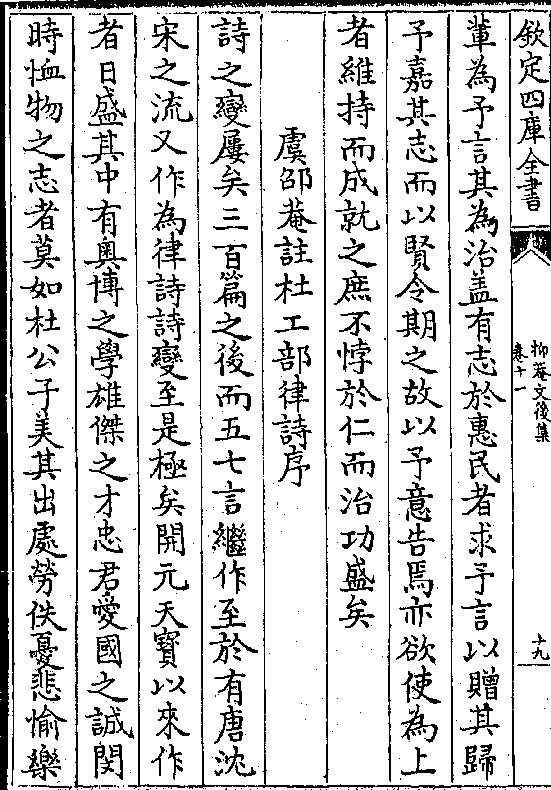 欽定四庫全書
抑菴文後集
卷十一
十九
輩為予言其為治盖有志於惠民者求予言以贈其歸
予嘉其志而以賢令期之故以予意告焉亦欲使為上
者維持而成就之庶不悖於仁而治功盛矣
虞邵菴註杜工部律詩序
詩之變屢矣三百篇之後而五七言繼作至於有唐沈
宋之流又作為律詩詩變至是極矣開元天寶以來作
者日盛其中有奥博之學雄傑之才忠君愛國之誠閔
時恤物之志者莫如杜公子美其出處勞佚憂悲愉樂